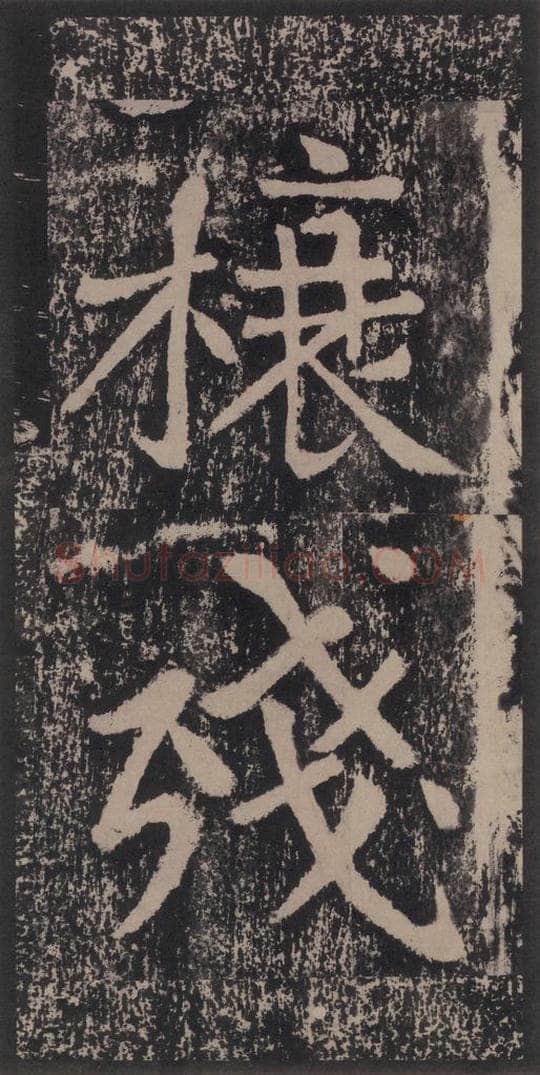 榱
殘
Shufaziliao.COM